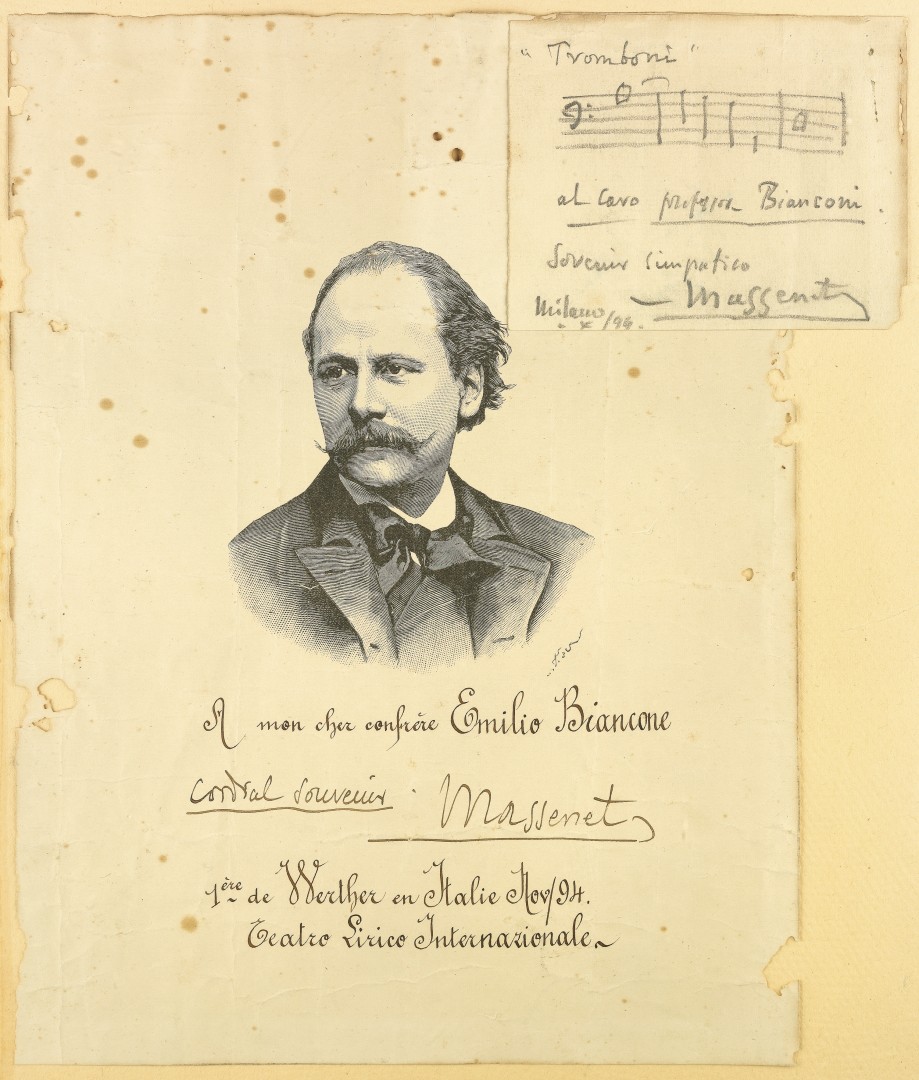 "Tromboni"
al caro professor Bianconi.
Sovenir simpatico
Massenet
Milano
X/94.
A mon cher confrère Emilio Biancone
cordial souvenir. Massenet
1ère de Werther en Italie Nov/94.
Teatro Lirico Internazionale